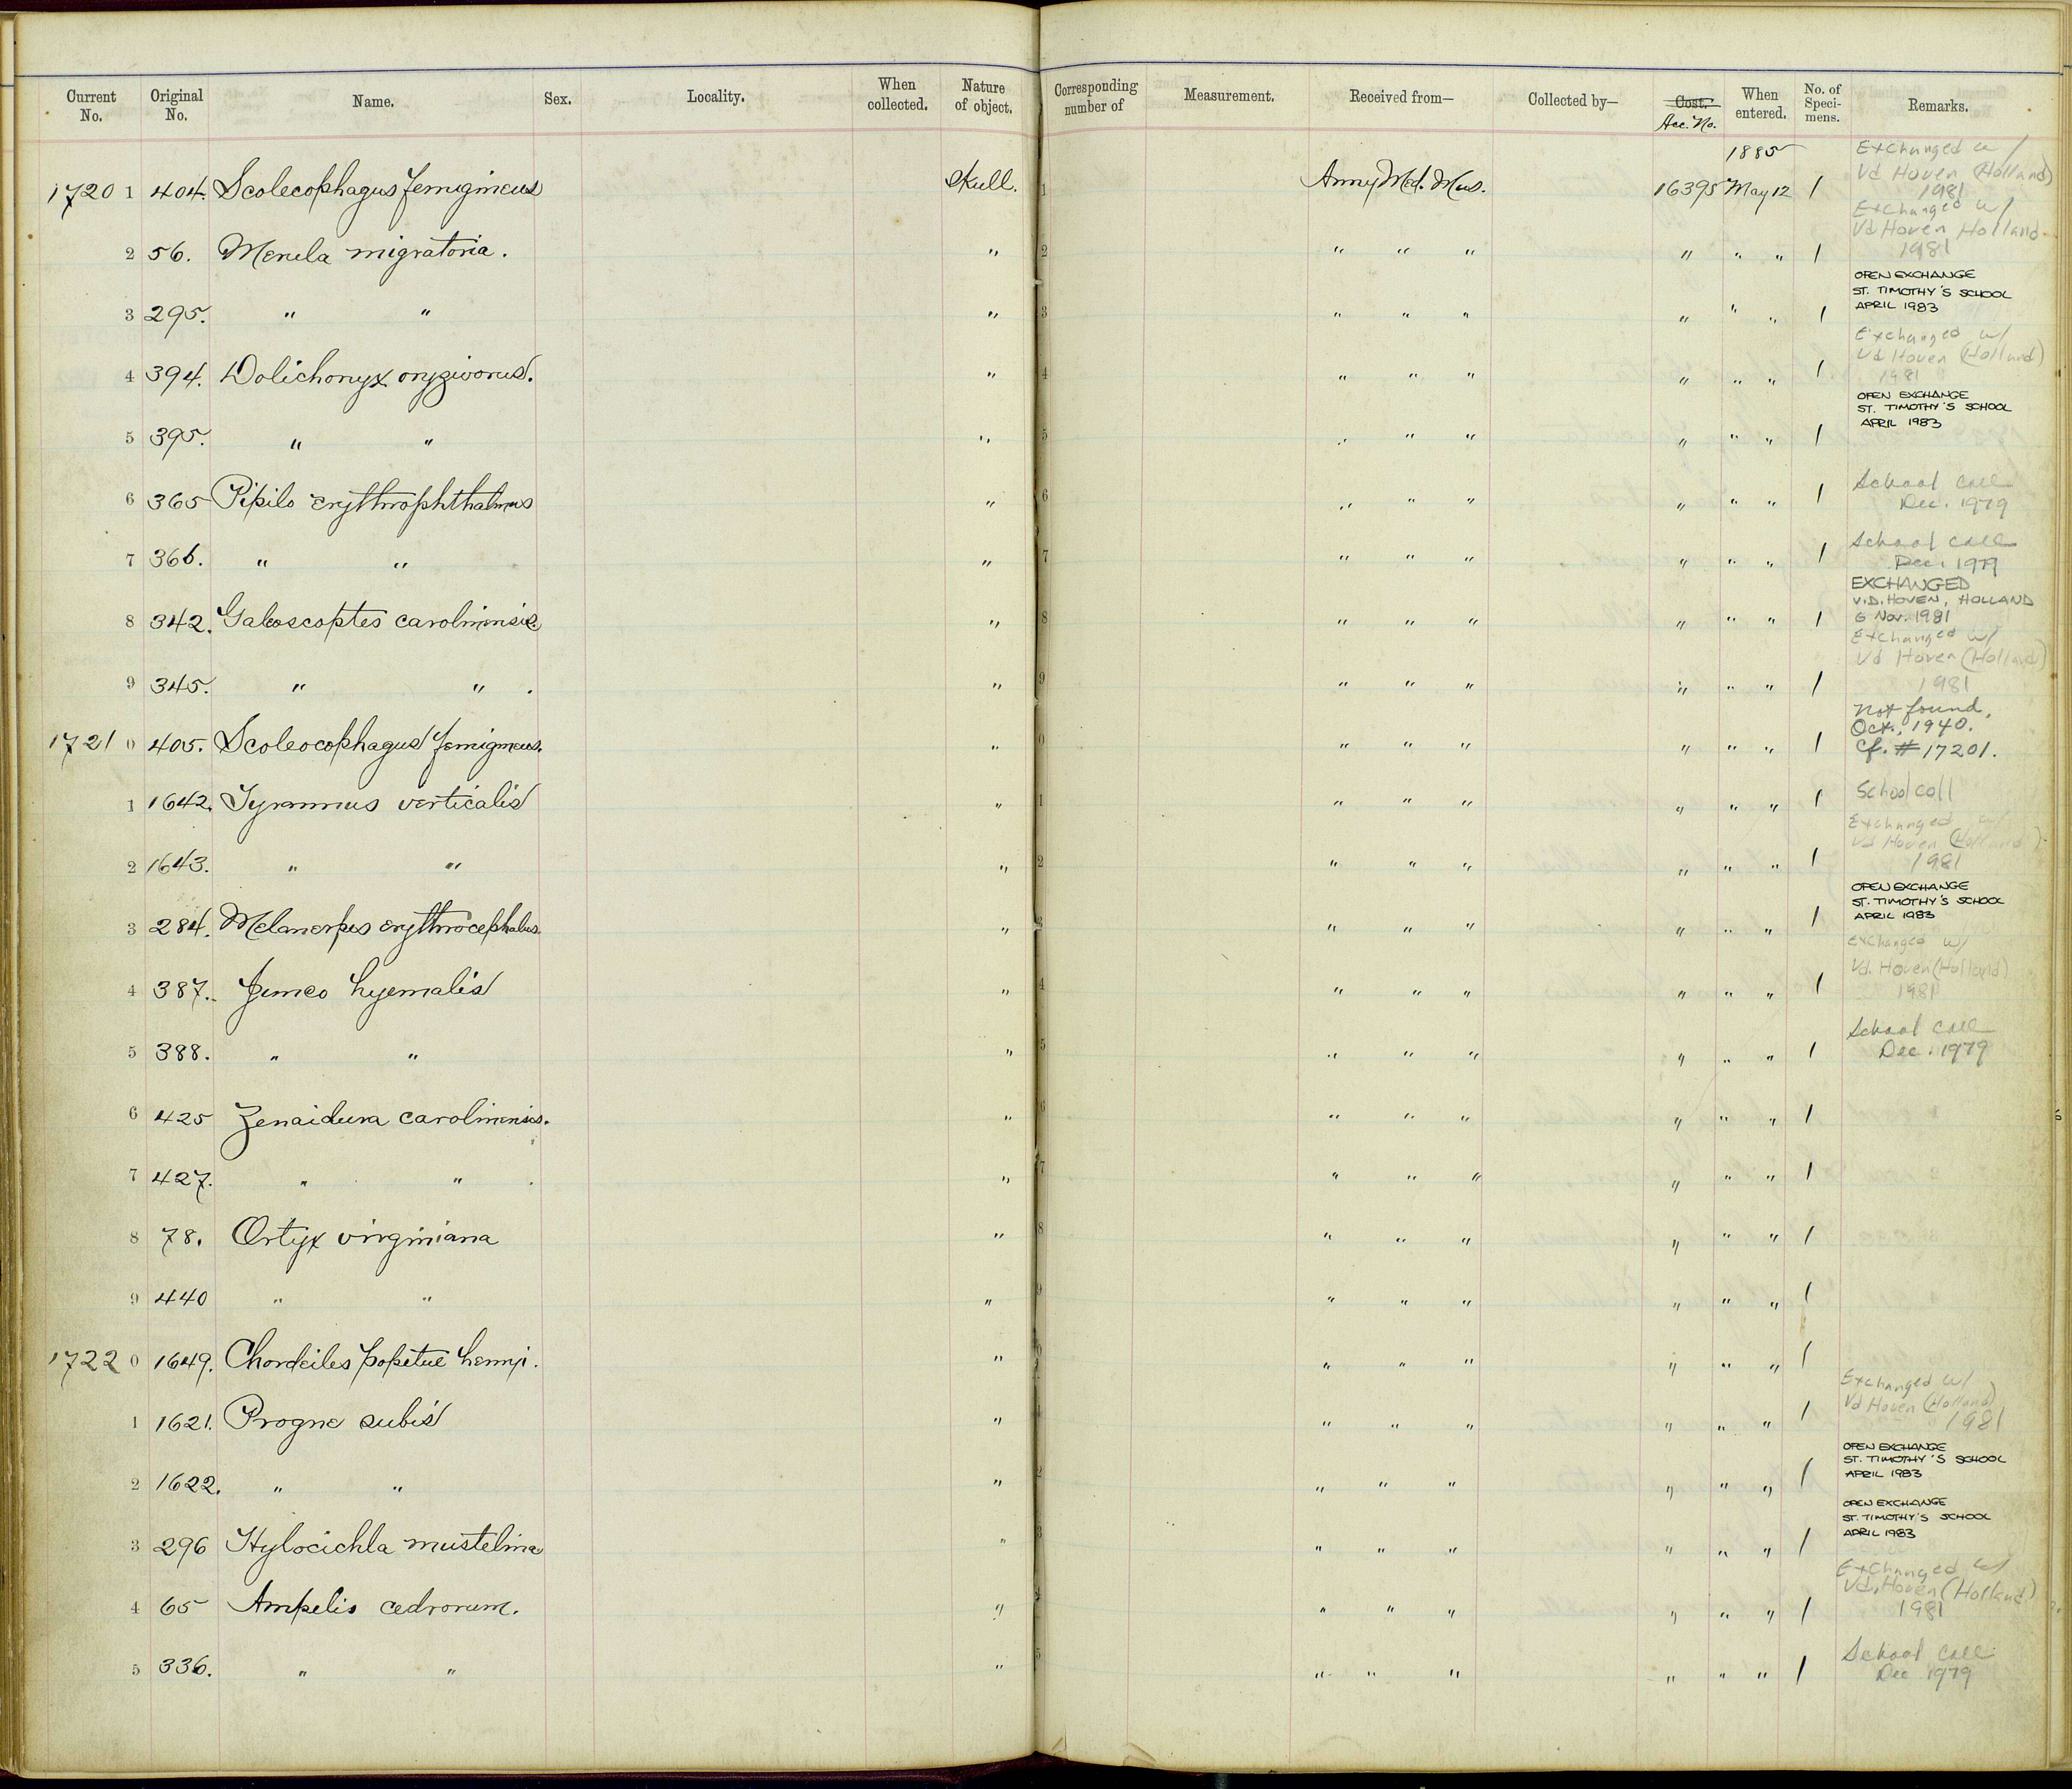 Current No. Original No. Name. Sex. Locality. When collected. Nature of object. Corresponding number of Measurement. Received from— Collected by— Cost. Acc. No. When entered. No. of Speci-mens. Remarks.
1885
1720 1 404. Scolecophagus ferrugineus Skull. 1 Army Med. Mus. 16395 May 12 1 Exchanged w/ Vd Hoven (Holland) 1981
2 56. Merula migratoria. " 2 " " " " " " 1 Exchanged w/ Vd Hoven Holland 1981
3 295. " " " 3 " " " " " " 1 OPEN EXCHANGE ST. TIMOTHY'S SCHOOL APRIL 1983
4 394. Dolichonyx oryzivorus. " 4 " " " " " " 1 Exchanged w/ Vd Hoven (Holland) 1981
5 395. " " " 5 " " " " " " 1 OPEN EXCHANGE ST. TIMOTHY'S SCHOOL APRIL 1983
6 365 Pipilo erythrophthalmus " 6 " " " " " " 1 School coll Dec. 1979
7 366. " " " 7 " " " " " " 1 School coll Dec. 1979
8 342. Galeoscoptes carolinensis. " 8 " " " " " " 1 EXCHANGED V.D. HOVEN, HOLLAND 6 Nov. 1981
9 345. " " . " 9 " " " " " " 1 Exchanged w/ Vd Hoven (Holland) 1981
1721 0 405. Scoleocophagus ferrugineus. " 0 " " " " " " 1 Not found, Oct., 1940. Cf. # 17201.
1 1642. Tyrannus verticalis " 1 " " " " " " 1 School coll
2 1643. " " " 2 " " " " " " 1 Exchanged w/ Vd Hoven (Holland) 1981
3 284. Melanerpes erythrocephalus. " 3 " " " " " " 1 OPEN EXCHANGE ST. TIMOTHY'S SCHOOL APRIL 1983
4 387. Junco hyemalis " 4 " " " " " " 1 exchanged w/ Vd. Hoven (Holland) 1981
5 388. " " " 5 " " " " " " 1 School coll Dec. 1979
6 425 Zenaidura carolinensis. " 6 " " " " " " 1
7 427. " " . " 7 " " " " " " 1
8 78. Ortyx virginiana " 8 " " " " " " 1
9 440 " " " 9 " " " " " " 1
1722 0 1649. Chordeiles popetue henryi. " 0 " " " " " " 1
1 1621. Progne subis " 1 " " " " " " 1 Exchanged w/ Vd Hoven (Holland) 1981
2 1622. " " " 2 " " " " " " 1 OPEN EXCHANGE ST. TIMOTHY'S SCHOOL APRIL 1983
3 296 Hylocichla mustelina " 3 " " " " " " 1 OPEN EXCHANGE ST. TIMOTHY'S SCHOOL APRIL 1983
4 65 Ampelis cedrorum. " 4 " " " " " " 1 Exchanged w/ Vd. Hoven (Holland) 1981
5 336. " " " 5 " " " " " " 1 School coll Dec 1979